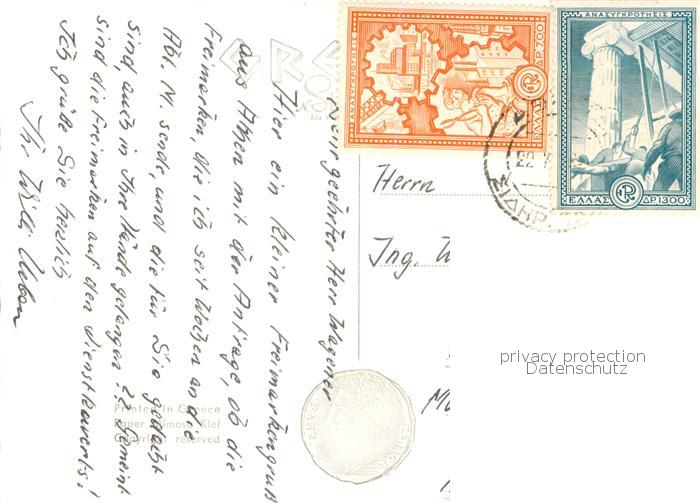 Sehr geehrter Herr Wagener
Hier ein kleiner Freimarkengruß
aus Athen mit der Anfrage, ob die
Freimarken, die ich seit Wochen an die
Abt. M. sende, und die für Sie gedacht
sind, auch in Ihre Hände gelangen?! Gemeint
sind die Freimarken auf den Dienstkuverts!
Ich grüße Sie herzlich
Ihr Willi
Herrn
Ing. W
ΑΝΑΣΥΓΚΡΟΤΗΣΙΣ
ΕΛΛΑΣ ΔΡ.700
ΑΝΑΣΥΓΚΡΟΤΗΣΙΣ
ΕΛΛΑΣ ΔΡ.1300
Printed in Greece
Paper Mimosa Kiel
Copyright reserved
privacy protection
Datenschutz